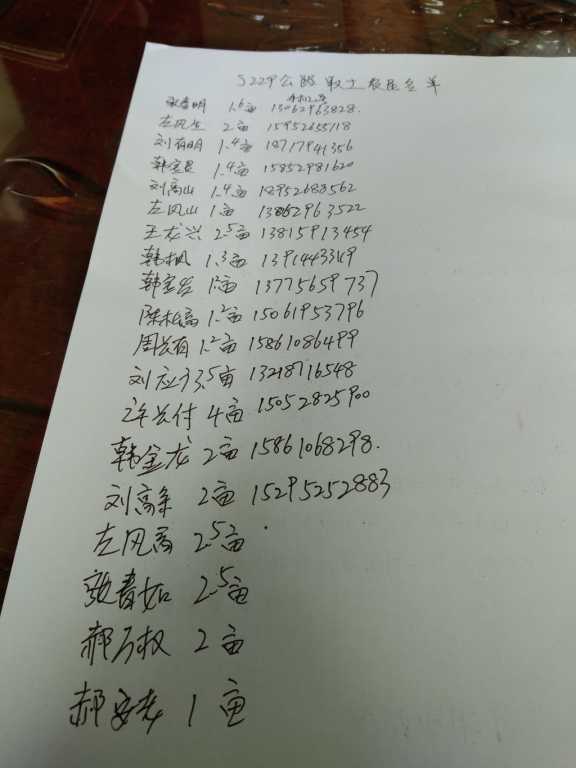 S229公路取土农民名单
手机号
张春明 1.6亩 15062963828.
左风生 2亩 15952655118
刘有明 1.4亩 18717941356
韩宝昆 1.4亩 15852981620
刘高山 1.4亩 18952688562
左风山 1亩 13862963522
王龙兴 2.5亩 13815913454
韩桃凤 1.3亩
韩宝岩 1亩 13775659737
陈松高 1.2亩 15061953796
周长有 1.2亩 15861086499
刘应才 3.5亩 13218716548
许长付 4亩 15052825900
韩金龙 2亩 15861068298.
刘高 2亩 15295252883
左风高 2.5亩
张春如 2.5亩
郝万权 2亩
郝 1亩